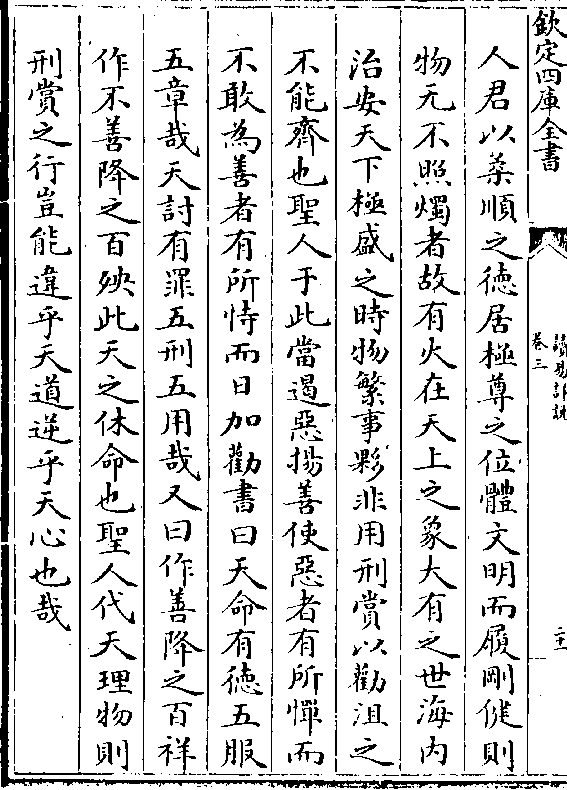 欽定四庫全書
讀易詳說
卷三
二十一
人君以柔順之德居極尊之位體文明而履剛健則
物无不照燭者故有火在天上之象大有之世海内
治安天下極盛之時物繁事夥非用刑賞以勸沮之
不能齊也聖人于此當遏惡揚善使惡者有所憚而
不敢為善者有所恃而日加勸書曰天命有德五服
五章哉天討有罪五刑五用哉又曰作善降之百祥
作不善降之百殃此天之休命也聖人代天理物則
刑賞之行豈能違乎天道逆乎天心也哉